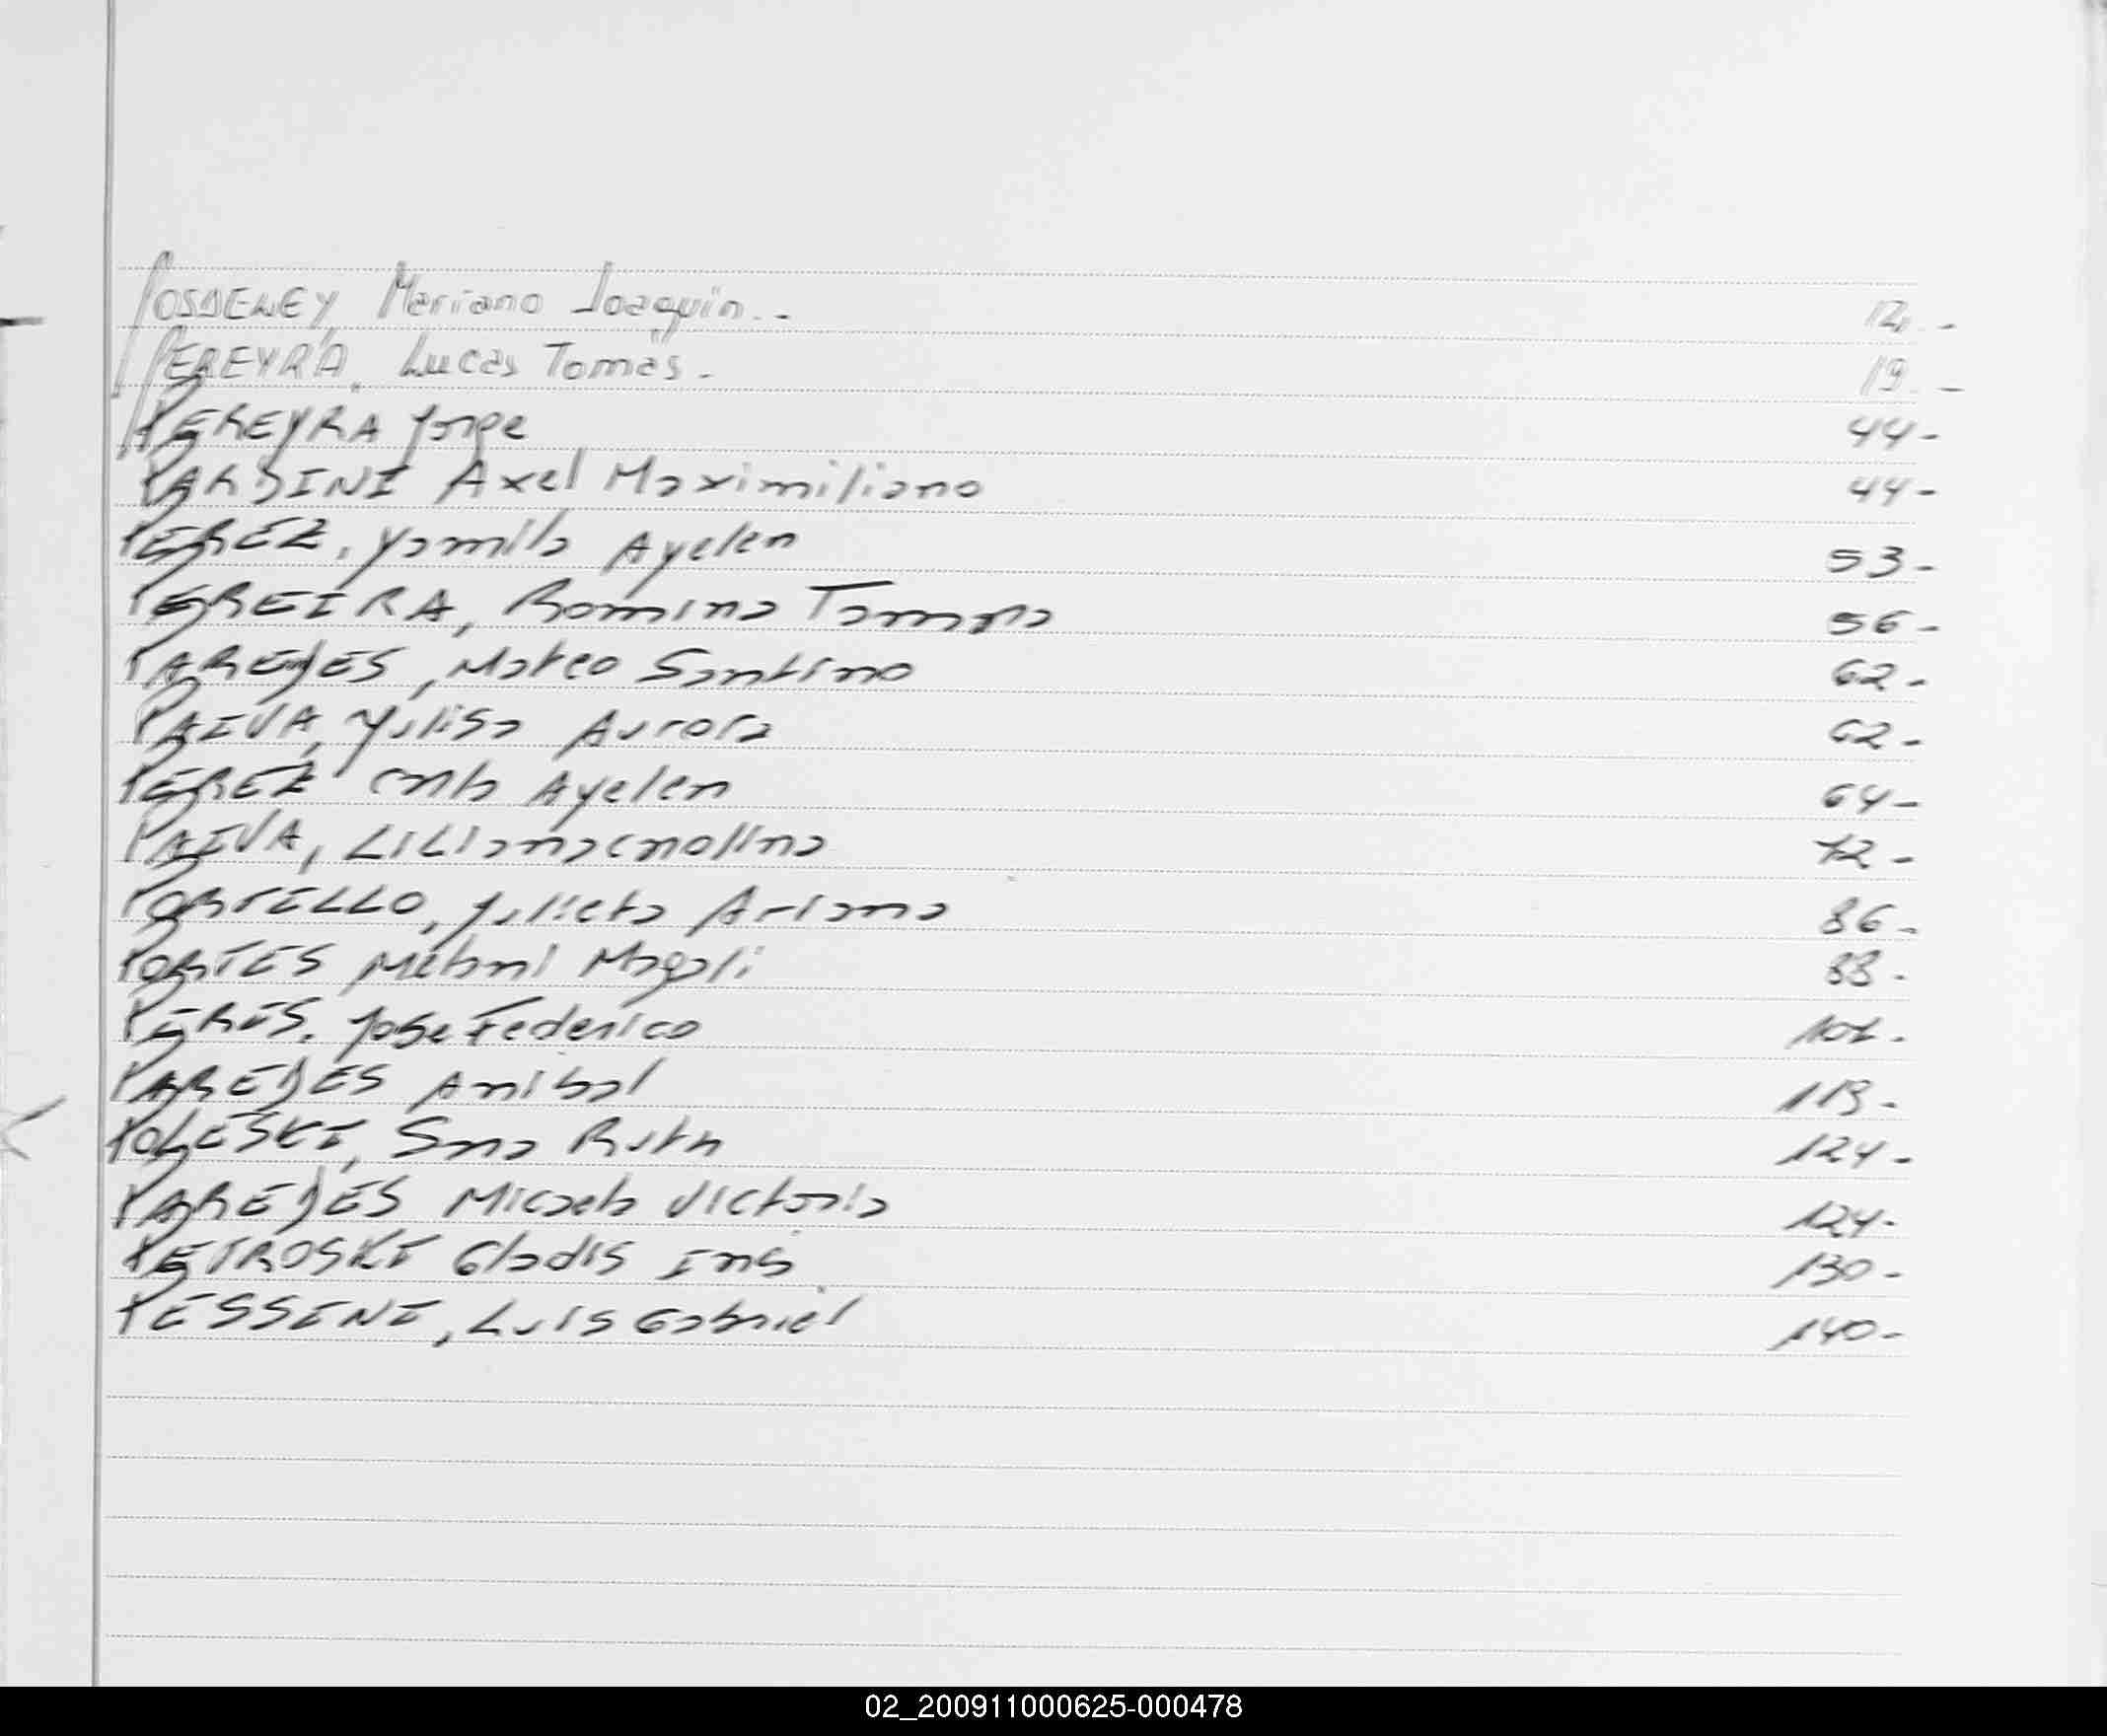 Mariano Joaquin.. 12.-
PEREYRA, Lucas Tomas. 19.-
PEREYRA Jorge 44-
PARDINI Axel Maximiliano 44-
PEREZ, Yamila Ayelen 53-
PEREIRA, Romina Tamara 56-
PAREDES, Mateo Santino 62-
PAIVA, Yulisa Aurora 62-
PEREZ Carla Ayelen 64-
PAIVA, Liliana Carolina 72-
PORTELLO, Julieta Ariana 86-
PORTES Melani Magali 88-
PERES, Jose Federico
PAREDES Anibal 113-
POLESKI, Ruth 124-
PAREDES Micaela Victoria 124-
PETROSKI Gladis 130-
PESSINI, Luis Gabriel 140-
02_200911000625-000478